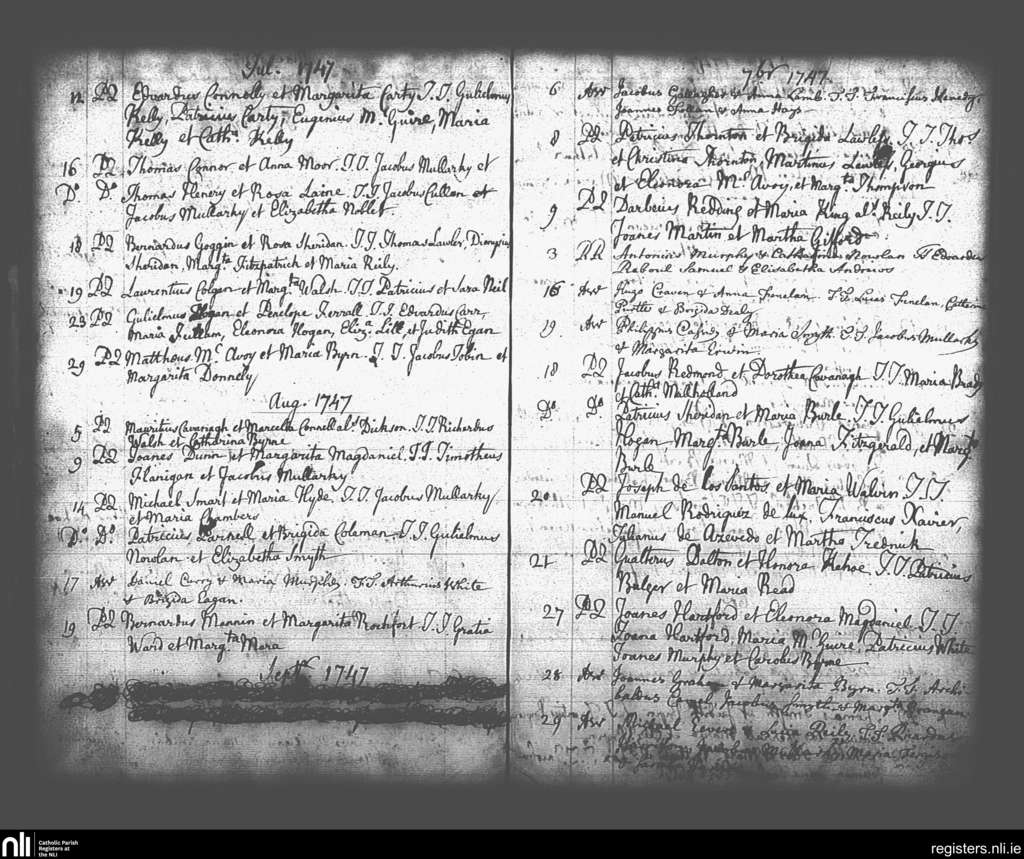 Jul. 1747
12 PQ Edvardus Connolly et Margarita Carty. T.T. Gulielmus
Kelly, Patricius Carty, Eugenius Mc. Guire, Maria
Kelly et Cath. Kelly
16 PQ Thomas Connor et Anna Moor. T.T. Jacobus Mullarky et
Do. Do. Thomas Henery et Rosa Laine T.T. Jacobus Cullan et
Jacobus Mullarky et Elizabetha Noblet.
18 PQ Bernardus Goggin et Rosa Sheridan. T.T. Thomas Lawler, Dionysius
Sheridan, Margta. Fitzpatrick et Maria Reily.
19 PQ Laurentius Colgan et Margta. Walsh. T.T. Patricius et Sara Neil
23 PQ Gulielmus Hogan et Penelope Kerrall T.T. Edvardus Carr,
Maria Eleonora Hogan, Eliza. Lill et Judith Egan
29 PQ Mattheus Mc. Avoy et Maria Byrn. T.T. Jacobus Tobin et
Margarita Donnelly
Aug. 1747
5 PQ Mauritius Cavanagh et Marcella Connell als. Dickson. T.T. Richardus
Walsh et Catharina Byrne
9 PQ Joanes Dunn et Margarita Magdaniel. T.T. Timotheus
Flanigan et Jacobus Mullarky
14 PQ Michael Smart et Maria Hyde. T.T. Jacobus Mullarky
et Maria Chambers
Do. Do. Patricius Darnell et Brigida Coleman T.T. Gulielmus
Nowlan et Elizabetha Smyth
17 AW Daniel Curry & Maria Murphy. T.T. Arthurius White
& Brigida Eagan.
19 PQ Bernardus Mannin et Margarita Rochfort T.T. Gratia
Ward et Margta. Mara
Septr. 1747
7br 1747
6 AW Jacobus Gallagher & Anna Lamb. T.T. Franciscus
Joannes & Anna Hays
8 PQ Patricius Thornton et Brigida Lawless T.T. Thos.
et Christina Thornton, Martinus Lawless, Georgus
et Eleonora Mc. Avoy, et Margta. Thompson
9 PQ Darbeius Redding et Maria King als. Reily T.T.
Joanes Martin et Martha Gifford
3 RR Antonius Murphy & Catharina Nowlan T Edvardus
Raboul Samuel & Elisabetha Andrews
16 AW Hugo Craven & Anna Finelan. T.T. Lucas Finelan, Catherin
& Brigida Dealy
19. AW Philippus & Maria Smyth. T.T. Jacobus Mullarky
& Margarita Erwin
18 PQ Jacobus Redmond et Dorothea Cavanagh T.T. Maria Brady
et Cath. Mulholland
Do. Do. Patricius Sheridan et Maria Burle T.T. Gulielmus
Hogan Margta. Burle, Joana Fitzgerald, et Margta.
Burle
20 PQ Joseph de los Santos et Maria Walvin T.T.
Manuel Rodriguez de lux, Franciscus Xavier,
Julianus de Azevedo et Martha Frednick
21 PQ Gualterus Dalton et Honora Kehoe. T.T. Patricius
Bulger et Maria Read
27 PQ Joanes Hartford et Eleonora Magdaniel T.T.
Joana Hartford, Maria Mc. Guire, Patricius White
Joanes Murphy et Carolus Byrne
28 AW Joannes Graham & Margarita Byrn. T.T. Archi
baldus Jacobus Smyth & Margta.
29 AW Michael Reily T.T. Ricardus
Maria
nli Catholic Parish
Registers at
the NLI
registers.nli.ie